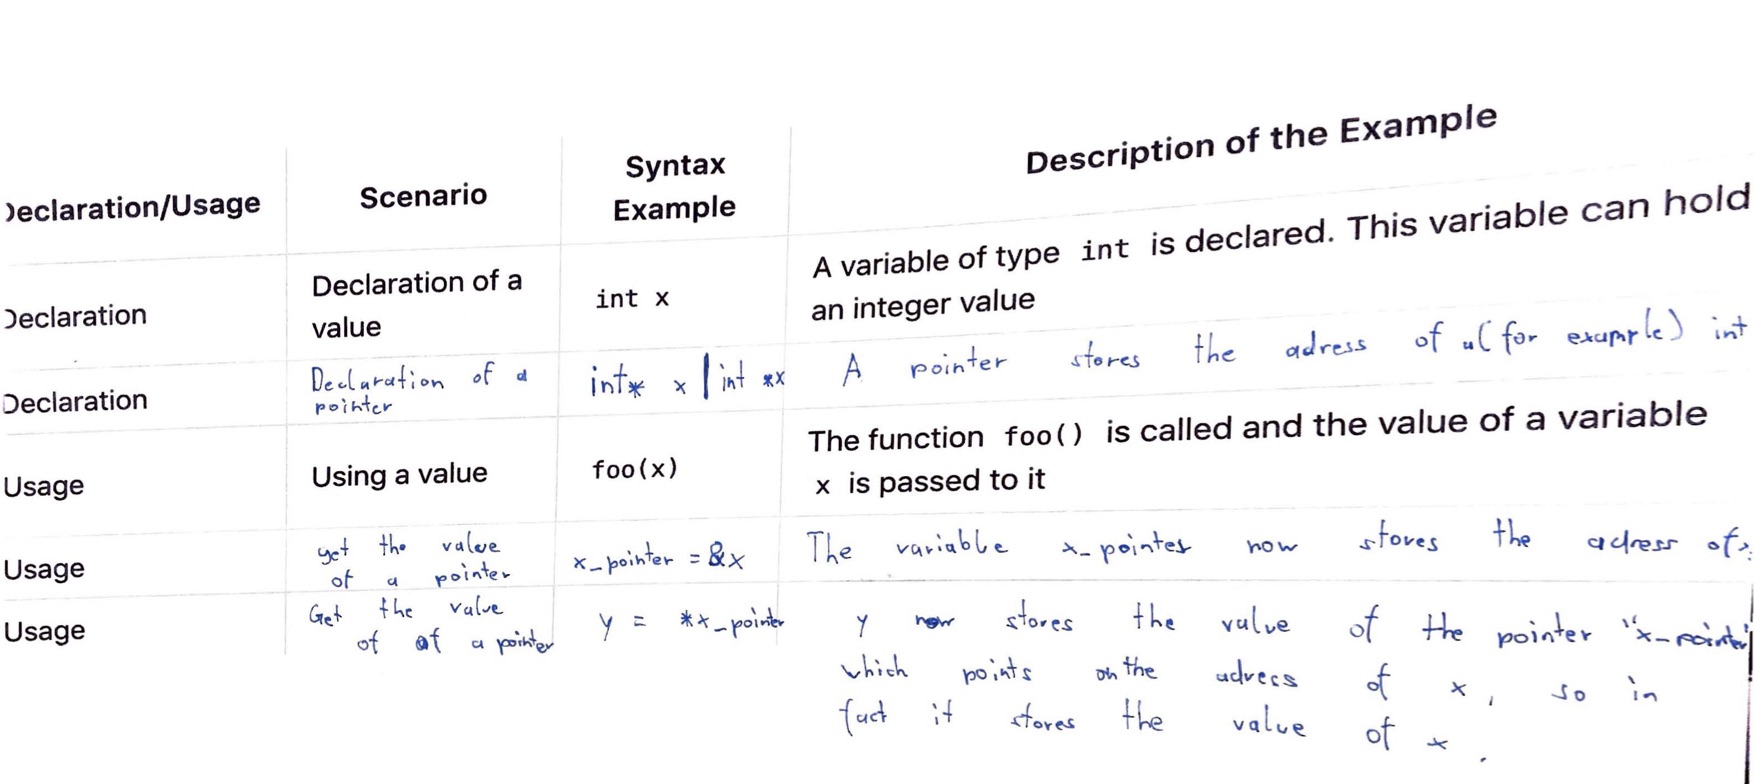 Declaration/Usage
Scenario
Syntax
Example
Description of the Example
Declaration
Declaration of a
value
int x
A variable of type int is declared. This variable can hold
an integer value
Declaration
Declaration of a
pointer
int* x | int *x
A pointer stores the adress of a (for example) int
Usage
Using a value
foo(x)
The function foo() is called and the value of a variable
x is passed to it
Usage
get the value
of a pointer
x_pointer = &x
The variable x_pointer now stores the adress of
Usage
Get the value
of of a pointer
y = *x_pointer
y now stores the value of the pointer "x_pointer"
which points on the adress of x, so in
fact it stores the value of x.